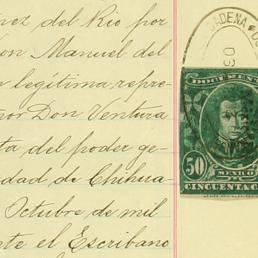 nez del Rio por
Don Manuel del
n legítima repre-
ñor Don Ventura
ta del poder ge-
dad de Chihua-
Octubre de mil
nte el Escribano
DOCUMEN
MEXICO
50
CINCUENTA C